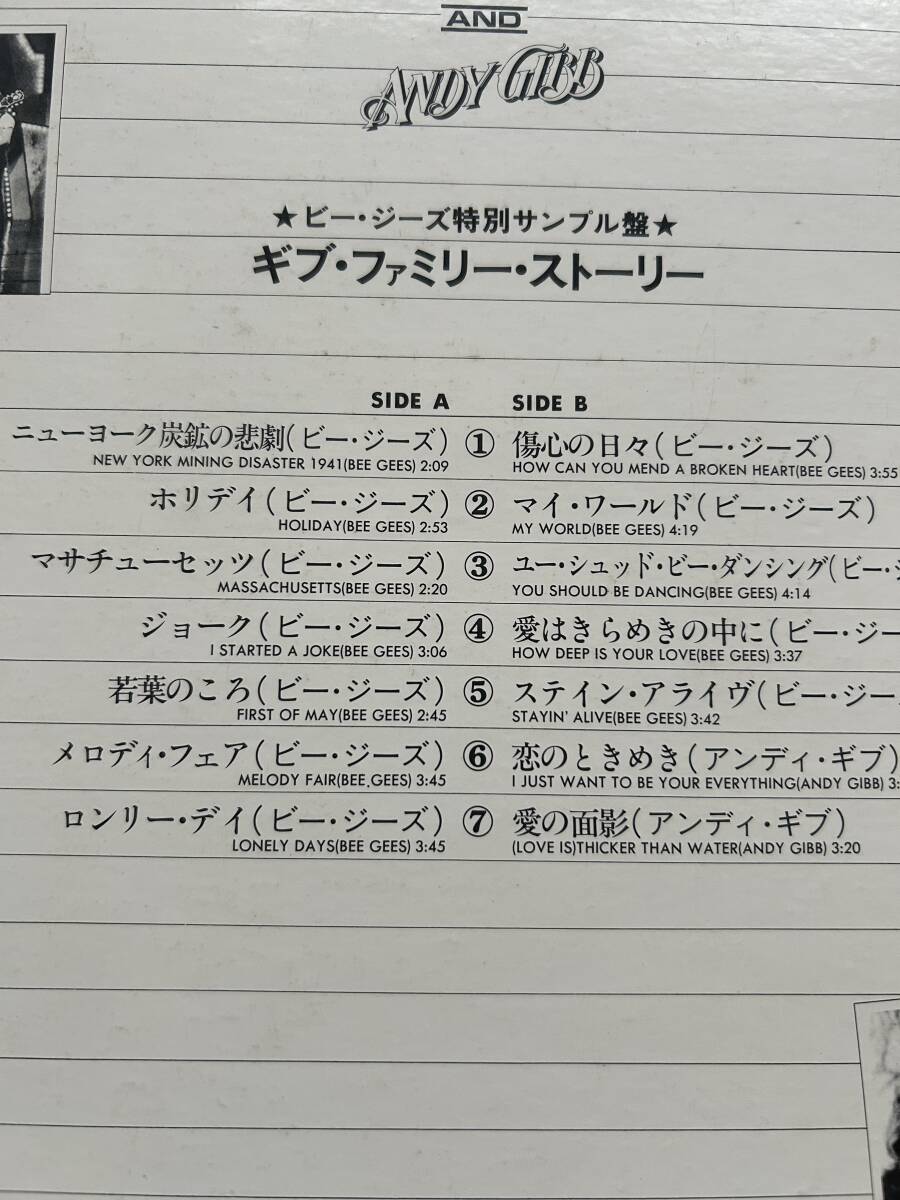 AND
ANDY GIBB
★ビー・ジーズ特別サンプル盤★
ギブ・ファミリー・ストーリー
SIDE A
ニューヨーク炭鉱の悲劇(ビー・ジーズ) ①
NEW YORK MINING DISASTER 1941(BEE GEES) 2:09
ホリデイ(ビー・ジーズ) ②
HOLIDAY(BEE GEES) 2:53
マサチューセッツ(ビー・ジーズ) ③
MASSACHUSETTS(BEE GEES) 2:20
ジョーク(ビー・ジーズ) ④
I STARTED A JOKE(BEE GEES) 3:06
若葉のころ(ビー・ジーズ) ⑤
FIRST OF MAY(BEE GEES) 2:45
メロディ・フェア(ビー・ジーズ) ⑥
MELODY FAIR(BEE.GEES) 3:45
ロンリー・デイ(ビー・ジーズ) ⑦
LONELY DAYS(BEE GEES) 3:45
SIDE B
傷心の日々(ビー・ジーズ)
HOW CAN YOU MEND A BROKEN HEART(BEE GEES) 3:55
マイ・ワールド(ビー・ジーズ)
MY WORLD(BEE GEES) 4:19
ユー・シュッド・ビー・ダンシング(ビー・
YOU SHOULD BE DANCING(BEE GEES) 4:14
愛はきらめきの中に(ビー・ジー
HOW DEEP IS YOUR LOVE(BEE GEES) 3:37
ステイン・アライヴ(ビー・ジー
STAYIN' ALIVE(BEE GEES) 3:42
恋のときめき(アンディ・ギブ)
I JUST WANT TO BE YOUR EVERYTHING(ANDY GIBB) 3:
愛の面影(アンディ・ギブ)
(LOVE IS)THICKER THAN WATER(ANDY GIBB) 3:20